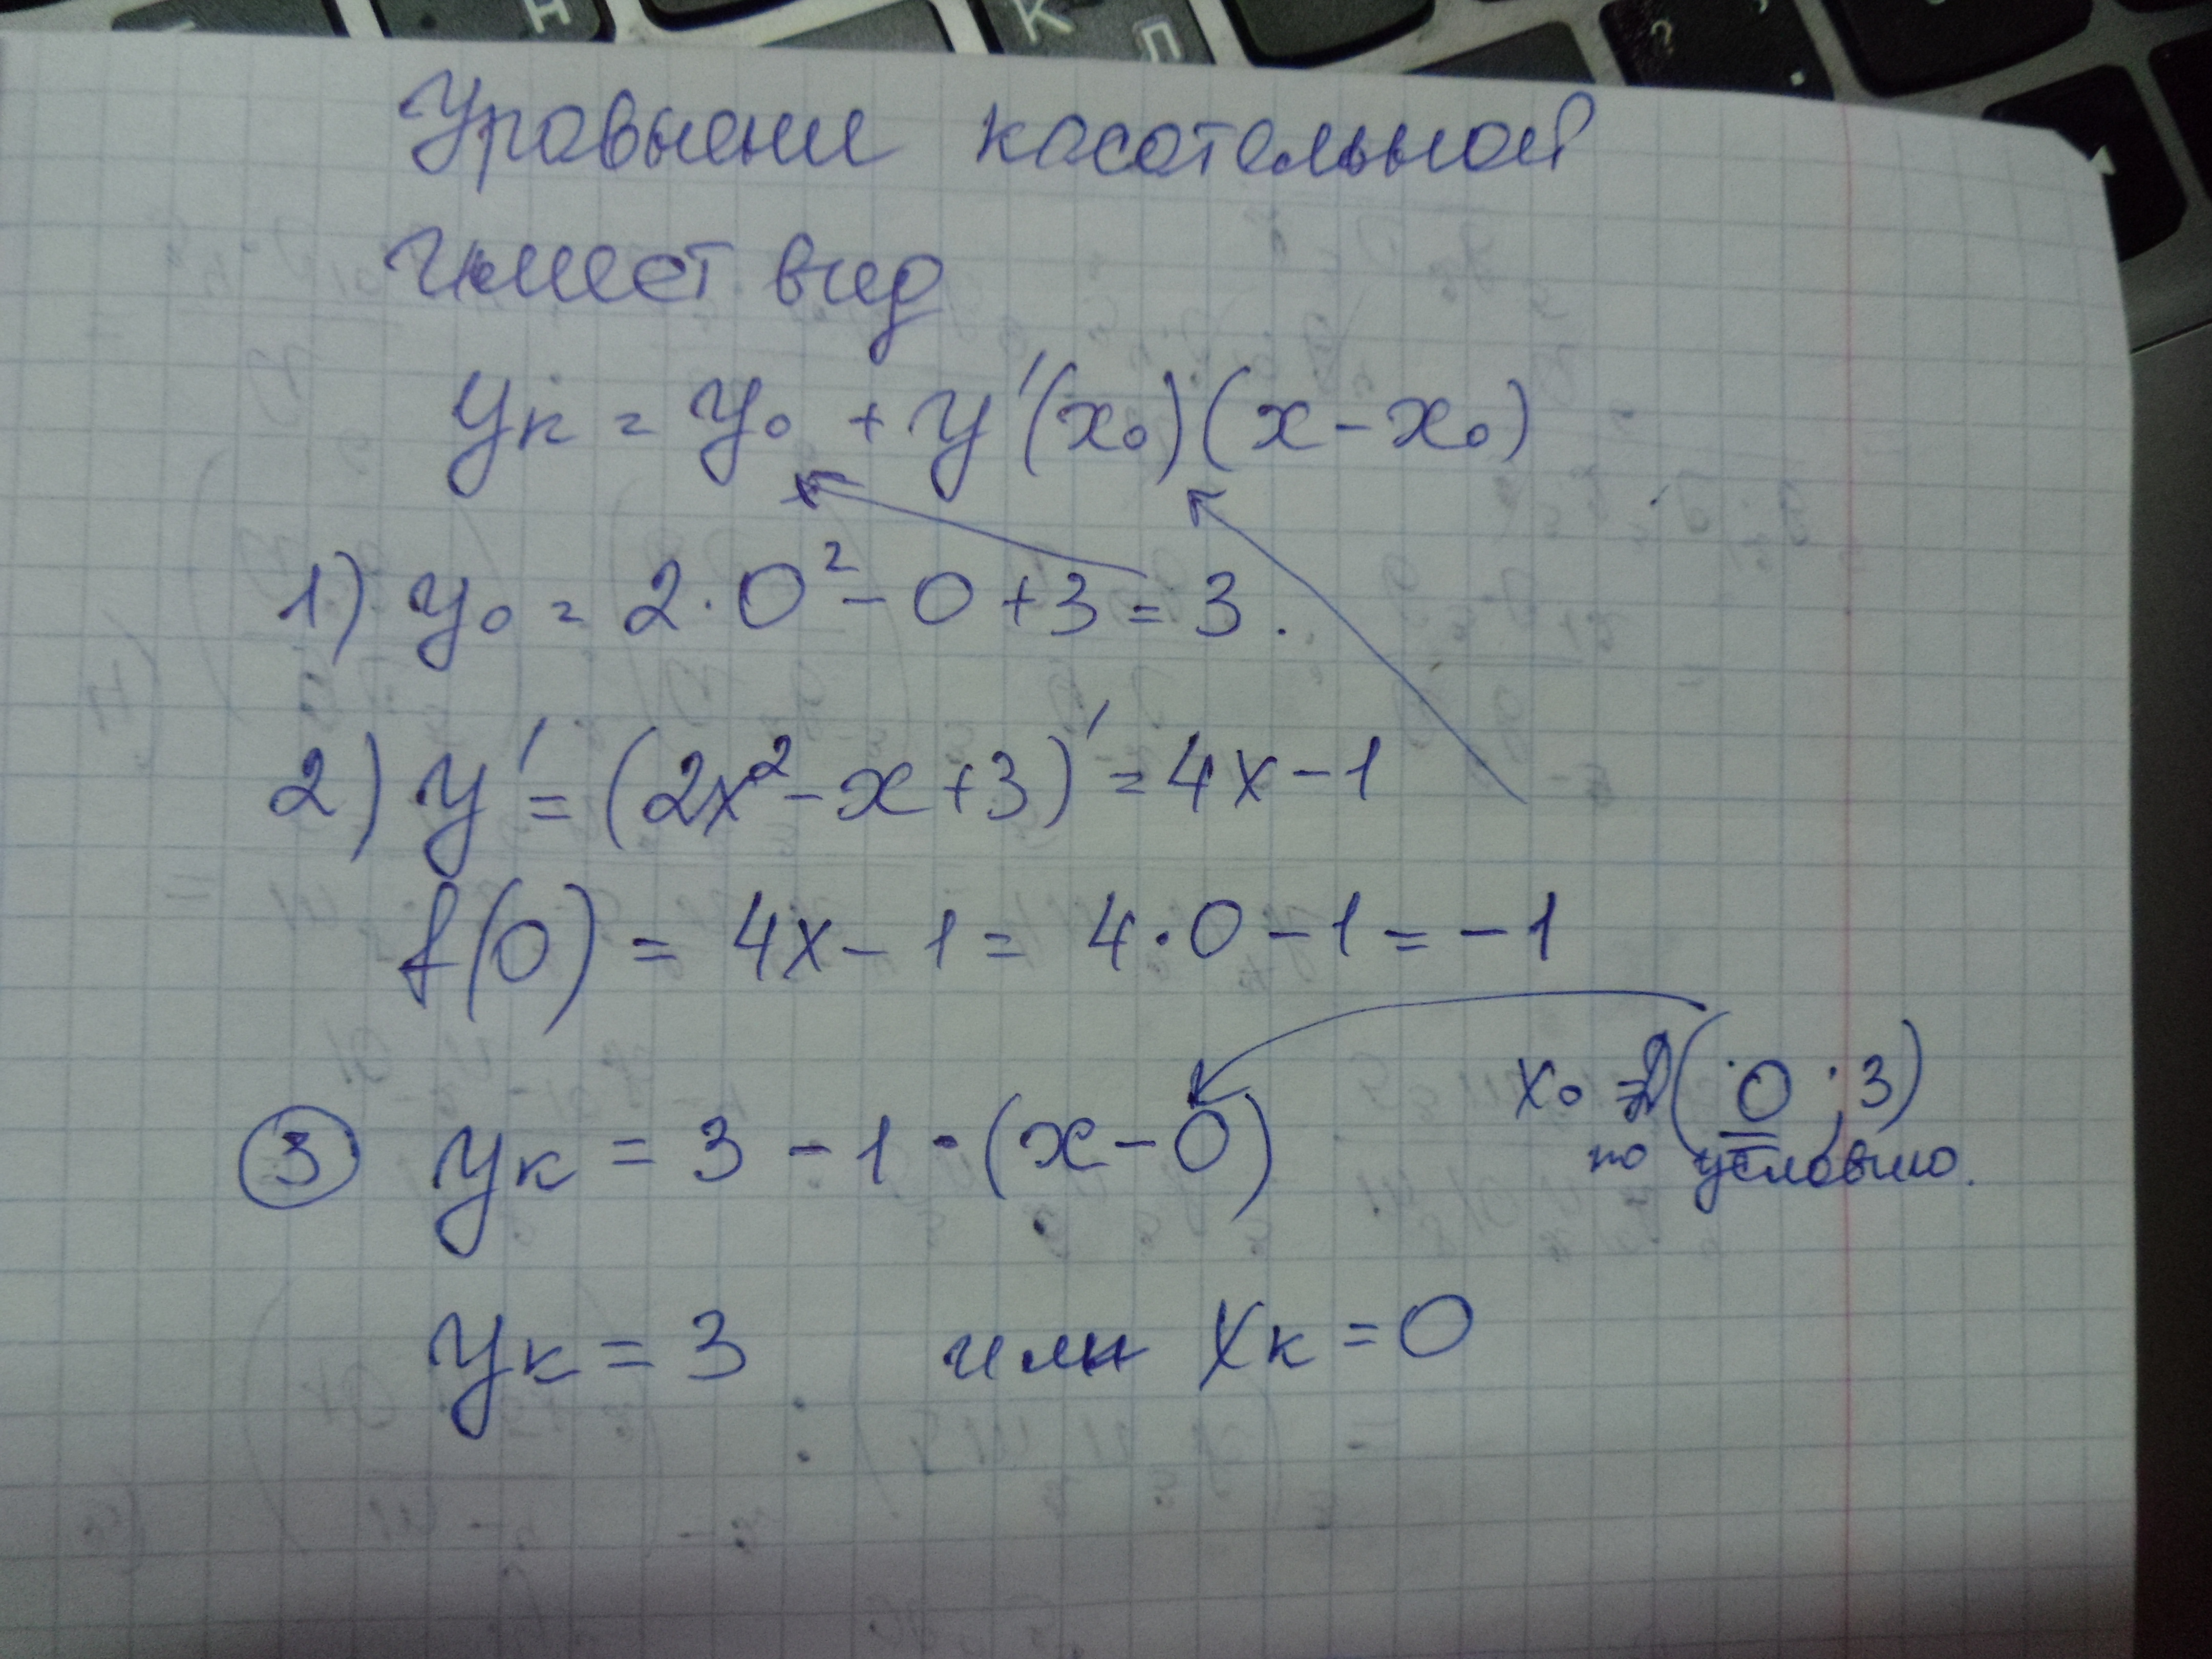 Уровнени касательной
Имеет вид
yк = y₀ + y'(x₀)(x - x₀)
1) y₀ = 2·0² - 0 + 3 = 3.
2) y' = (2x² - x + 3)' = 4x - 1
f(0) = 4x - 1 = 4·0 - 1 = -1
x₀ = (0; 3)
по условию.
3 yк = 3 - 1 · (x - 0)
yк = 3 или xк = 0